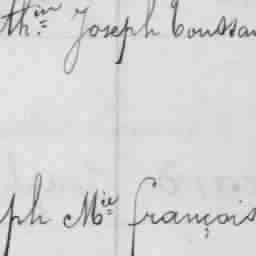 th.in Joseph Toussa
ph Mie françois